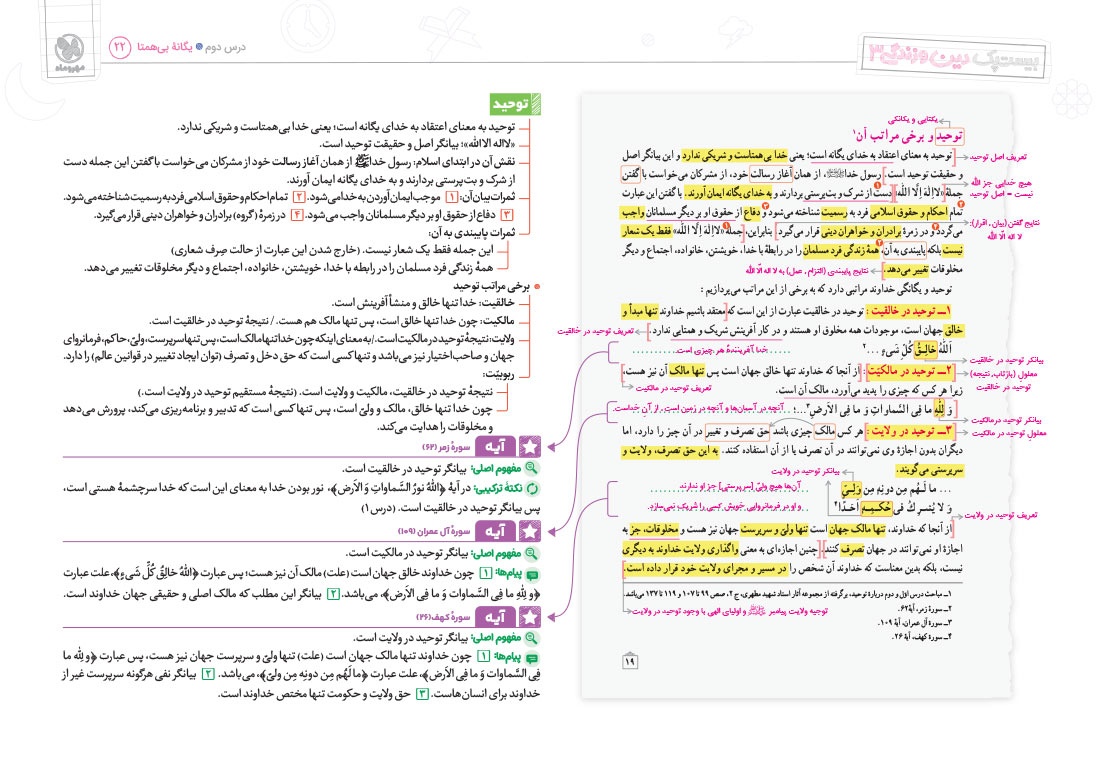 بیست‌پک دین و زندگی ۳
درس دوم ● یگانهٔ بی‌همتا ۲۲
مهروماه
یکتایی و یگانگی
توحید و برخی مراتب آن۱
توحید به معنای اعتقاد به خدای یگانه است؛ یعنی خدا بی‌همتاست و شریکی ندارد و این بیانگر اصل
تعریف اصل توحید
و حقیقت توحید است. رسول خدا ﷺ، از همان آغاز رسالت خود، از مشرکان می‌خواست با گفتن
جملهٔ «لا اِلٰهَ اِلَّا اللّٰه» دست از شرک و بت‌پرستی بردارند و به خدای یگانه ایمان آورند. با گفتن این عبارت
هیچ خدایی جز الله
نیست = اصل توحید
تمام احکام و حقوق اسلامی فرد به رسمیت شناخته می‌شود و دفاع از حقوق او بر دیگر مسلمانان واجب
می‌گردد و در زمرهٔ برادران و خواهران دینی قرار می‌گیرد. بنابراین، جملهٔ «لا اِلٰهَ اِلَّا اللّٰه» فقط یک شعار
نتایج گفتن (بیان، اقرار):
لا اله الّا الله
نیست بلکه پایبندی به آن، همهٔ زندگی فرد مسلمان را در رابطهٔ با خدا، خویشتن، خانواده، اجتماع و دیگر
مخلوقات تغییر می‌دهد.
نتایج پایبندی (التزام، عمل) به لا اله الّا الله
توحید و یگانگی خداوند مراتبی دارد که به برخی از این مراتب می‌پردازیم :
۱ــ توحید در خالقیت : توحید در خالقیت عبارت از این است که معتقد باشیم خداوند تنها مبدأ و
خالق جهان است، موجودات همه مخلوق او هستند و در کار آفرینش شریک و همتایی ندارد.
تعریف توحید در خالقیت
اَللّٰهُ خالِقُ كُلِّ شَیءٍ ... ۲
خدا آفرینندهٔ هر چیزی است.
بیانگر توحید در خالقیت
۲ــ توحید در مالکیّت : از آنجا که خداوند تنها خالق جهان است پس تنها مالک آن نیز هست،
معلول (بازتاب، نتیجه)
توحید در خالقیت
زیرا هر کس که چیزی را پدید می‌آورد، مالک آن است.
تعریف توحید در مالکیت
وَ لِلّٰهِ ما فِی السَّماواتِ وَ ما فِی الاَرضِ۳...؛
آنچه در آسمان‌ها و آنچه در زمین است، از آن خداست.
بیانگر توحید درمالکیت
۳ــ توحید در ولایت : هر کس مالک چیزی باشد حق تصرف و تغییر در آن چیز را دارد، اما
معلولِ توحید در مالکیت
دیگران بدون اجازهٔ وی نمی‌توانند در آن تصرف یا از آن استفاده کنند. به این حق تصرف، ولایت و
سرپرستی می‌گویند.
بیانگر توحید در ولایت
... ما لَـهُم مِن دونِهِ مِن وَلِـیٍّ
آن‌ها هیچ ولیّ [سرپرستی] جز او ندارند
وَ لا یُشرِكُ فی حُكمِهِ اَحَدًا۴
و او در فرمانروایی خویش کسی را شریک نمی‌سازد.
تعریف توحید در ولایت
از آنجا که خداوند، تنها مالک جهان است تنها ولیّ و سرپرست جهان نیز هست و مخلوقات، جز به
اجازهٔ او نمی‌توانند در جهان تصرف کنند. چنین اجازه‌ای به معنی واگذاری ولایت خداوند به دیگری
نیست، بلکه بدین معناست که خداوند آن شخص را در مسیر و مجرای ولایت خود قرار داده است.
۱ــ مباحث درس اول و دوم دربارهٔ توحید، برگرفته از مجموعه آثار استاد شهید مطهری، ج ۲، صص ۹۹ تا ۱۰۷ و ۱۱۹ تا ۱۳۷ می‌باشد.
توجیه ولایت پیامبر ﷺ و اولیای الهی با وجود توحید در ولایت
۲ــ سورهٔ زمر، آیهٔ ۶۲.
۳ــ سورهٔ آل عمران، آیهٔ ۱۰۹.
۴ــ سورهٔ کهف، آیهٔ ۲۶.
۱۹
توحید
توحید به معنای اعتقاد به خدای یگانه است؛ یعنی خدا بی‌همتاست و شریکی ندارد.
«لااله الاالله»؛ بیانگر اصل و حقیقت توحید است.
نقش آن در ابتدای اسلام: رسول خدا ﷺ از همان آغاز رسالت خود از مشرکان می‌خواست با گفتن این جمله دست
از شرک و بت‌پرستی بردارند و به خدای یگانه ایمان آورند.
ثمرات بیان آن: ۱ موجب ایمان آوردن به خدا می‌شود. ۲ تمام احکام و حقوق اسلامی فرد به رسمیت شناخته می‌شود.
۳ دفاع از حقوق او بر دیگر مسلمانان واجب می‌شود. ۴ در زمرهٔ (گروه) برادران و خواهران دینی قرار می‌گیرد.
ثمرات پایبندی به آن:
این جمله فقط یک شعار نیست. (خارج شدن این عبارت از حالت صِرف شعاری)
همهٔ زندگی فرد مسلمان را در رابطه با خدا، خویشتن، خانواده، اجتماع و دیگر مخلوقات تغییر می‌دهد.
برخی مراتب توحید
خالقیت: خدا تنها خالق و منشأ آفرینش است.
مالکیت: چون خدا تنها خالق است، پس تنها مالک هم هست. / نتیجهٔ توحید در خالقیت است.
ولایت: نتیجهٔ توحید در مالکیت است. / به معنای اینکه چون خدا تنها مالک است، پس تنها سرپرست، ولیّ، حاکم، فرمانروای
جهان و صاحب‌اختیار نیز می‌باشد و تنها کسی است که حق دخل و تصرف (توان ایجاد تغییر در قوانین عالم) را دارد.
ربوبیّت:
نتیجهٔ توحید در خالقیت، مالکیت و ولایت است. (نتیجهٔ مستقیم توحید در ولایت است.)
چون خدا تنها خالق، مالک و ولیّ است، پس تنها کسی است که تدبیر و برنامه‌ریزی می‌کند، پرورش می‌دهد
و مخلوقات را هدایت می‌کند.
آیه سورهٔ زمر (۶۲)
مفهوم اصلی: بیانگر توحید در خالقیت است.
نکتهٔ ترکیبی: در آیهٔ ﴿اللّٰهُ نورُ السَّماواتِ وَ الاَرضِ﴾، نور بودن خدا به معنای این است که خدا سرچشمهٔ هستی است،
پس بیانگر توحید در خالقیت است. (درس ۱)
آیه سورهٔ آل عمران (۱۰۹)
مفهوم اصلی: بیانگر توحید در مالکیت است.
پیام‌ها: ۱ چون خداوند خالق جهان است (علت) مالک آن نیز هست؛ پس عبارت ﴿اللّٰهُ خالِقُ كُلِّ شَیءٍ﴾، علت عبارت
﴿و لِلّٰهِ ما فِی السَّماوات وَ ما فِی الاَرض﴾، می‌باشد. ۲ بیانگر این مطلب که مالک اصلی و حقیقی جهان خداوند است.
آیه سورهٔ کهف (۲۶)
مفهوم اصلی: بیانگر توحید در ولایت است.
پیام‌ها: ۱ چون خداوند تنها مالک جهان است (علت) تنها ولیّ و سرپرست جهان نیز هست، پس عبارت ﴿و لِلّٰه ما
فِی السَّماوات وَ ما فِی الاَرض﴾، علت عبارت ﴿ما لَهُم مِن دونِهِ مِن ولیّ﴾، می‌باشد. ۲ بیانگر نفی هرگونه سرپرست غیر از
خداوند برای انسان‌هاست. ۳ حق ولایت و حکومت تنها مختص خداوند است.